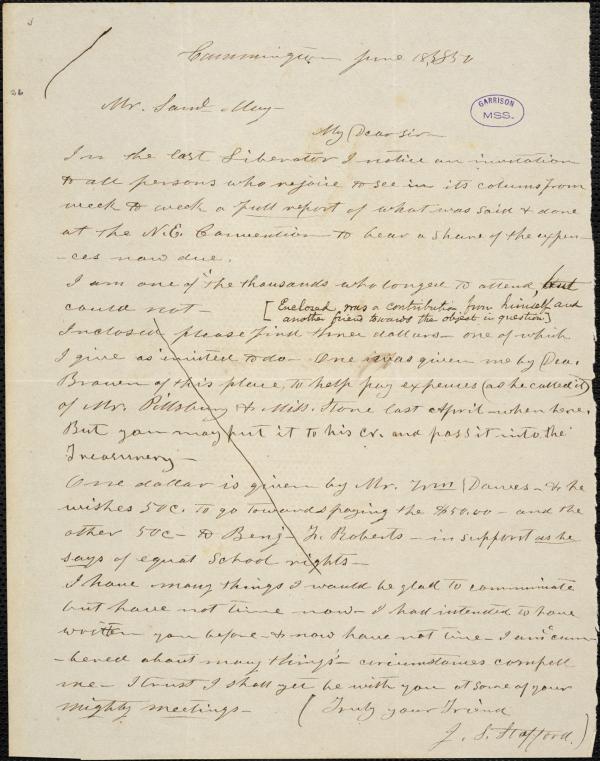 Cummington June 18, 1850
Mr. Saml May-
GARRISON
MSS.
My Dear sir-
In the last Liberator I notice an invitation
to all persons who rejoice to see in its colums from
week to week a full report of what was said & done
at the N.E. Convention- to bear a share of the expen-
-ces now due.
I am one of the thousands who longed to attend, but
could not-
[Enclosed was a contribution from himself and
another friend towards the object in question]
Inclosed please find three dollars- one of which
I give as invited to do- One was given me by Dea.
Brown of this place, to help pay expences (as he called it)
of Mr. Pillsbury & Miss. Stone last April- when here.
But you may put it to his cr. and pass it into the
Treasurery-
One dollar is given by Mr. Wm Dawes- & he
wishes 50c. to go towards paying the $50.00- and the
other 50c- to Benj- F. Roberts- in support as he
says of equal School rights-
I have many things I would be glad to communicate
but have not time now- I had intended to have
written you before- & now have not time- I am cum-
-bered about many things- circumstances compell
me- I trust I shall yet be with you at some of your
mighty meetings-
(Truly your Friend
J. S. Stafford.)